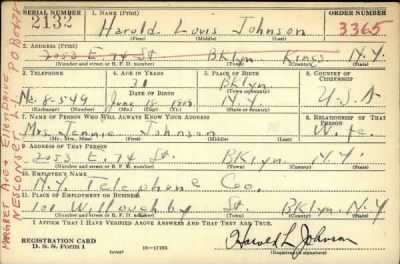 SERIAL NUMBER 1. NAME (Print) ORDER NUMBER
2132 Harold Louis Johnson 3365
(First) (Middle) (Last)
2. ADDRESS (Print)
2053 E. 74 St. BKlyn Kings N.Y.
(Number and street or R. F. D. number) (Town) (County) (State)
3. TELEPHONE 4. AGE IN YEARS 5. PLACE OF BIRTH 6. COUNTRY OF CITIZENSHIP
31 BKlyn
DATE OF BIRTH (Town or county)
No. 8-549 June N.Y. U.S.A
(Exchange) (Number) (Mo.) (Day) (Yr.) (State or country)
7. NAME OF PERSON WHO WILL ALWAYS KNOW YOUR ADDRESS 8. RELATIONSHIP OF THAT PERSON
Mrs. Jennie Johnson Wife
(Mr., Mrs., Miss) (First) (Middle) (Last)
9. ADDRESS OF THAT PERSON
2053 E. 74 St. BKlyn. N.Y.
(Number and street or R. F. D. number) (Town) (County) (State)
10. EMPLOYER'S NAME
N.Y. Telephone Co.
11. PLACE OF EMPLOYMENT OR BUSINESS
100 Willoughby St BKlyn. N.Y
(Number and street or R. F. D. number) (Town) (County) (State)
I AFFIRM THAT I HAVE VERIFIED ABOVE ANSWERS AND THAT THEY ARE TRUE.
REGISTRATION CARD
D. S. S. Form 1 (over) 16—17105 Harold L Johnson
(Registrant's signature)
MARGRET AVE + ELLEN DRIVE
NESCONSET P O Box